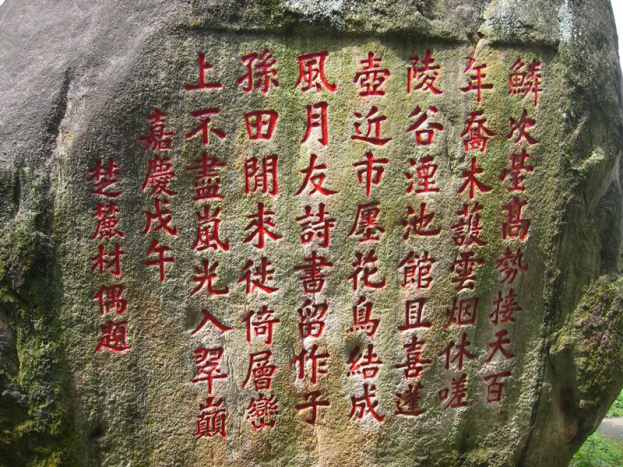 鱗次臺高勢接天百
年喬木護雲烟休嗟
陵谷湮池館且喜蓬
壺近市廛花鳥結成
風月友詩書留作子
孫田閒來徙倚層巒
上不盡嵐光入翠巔
嘉慶戊午
楚蔍村偶題